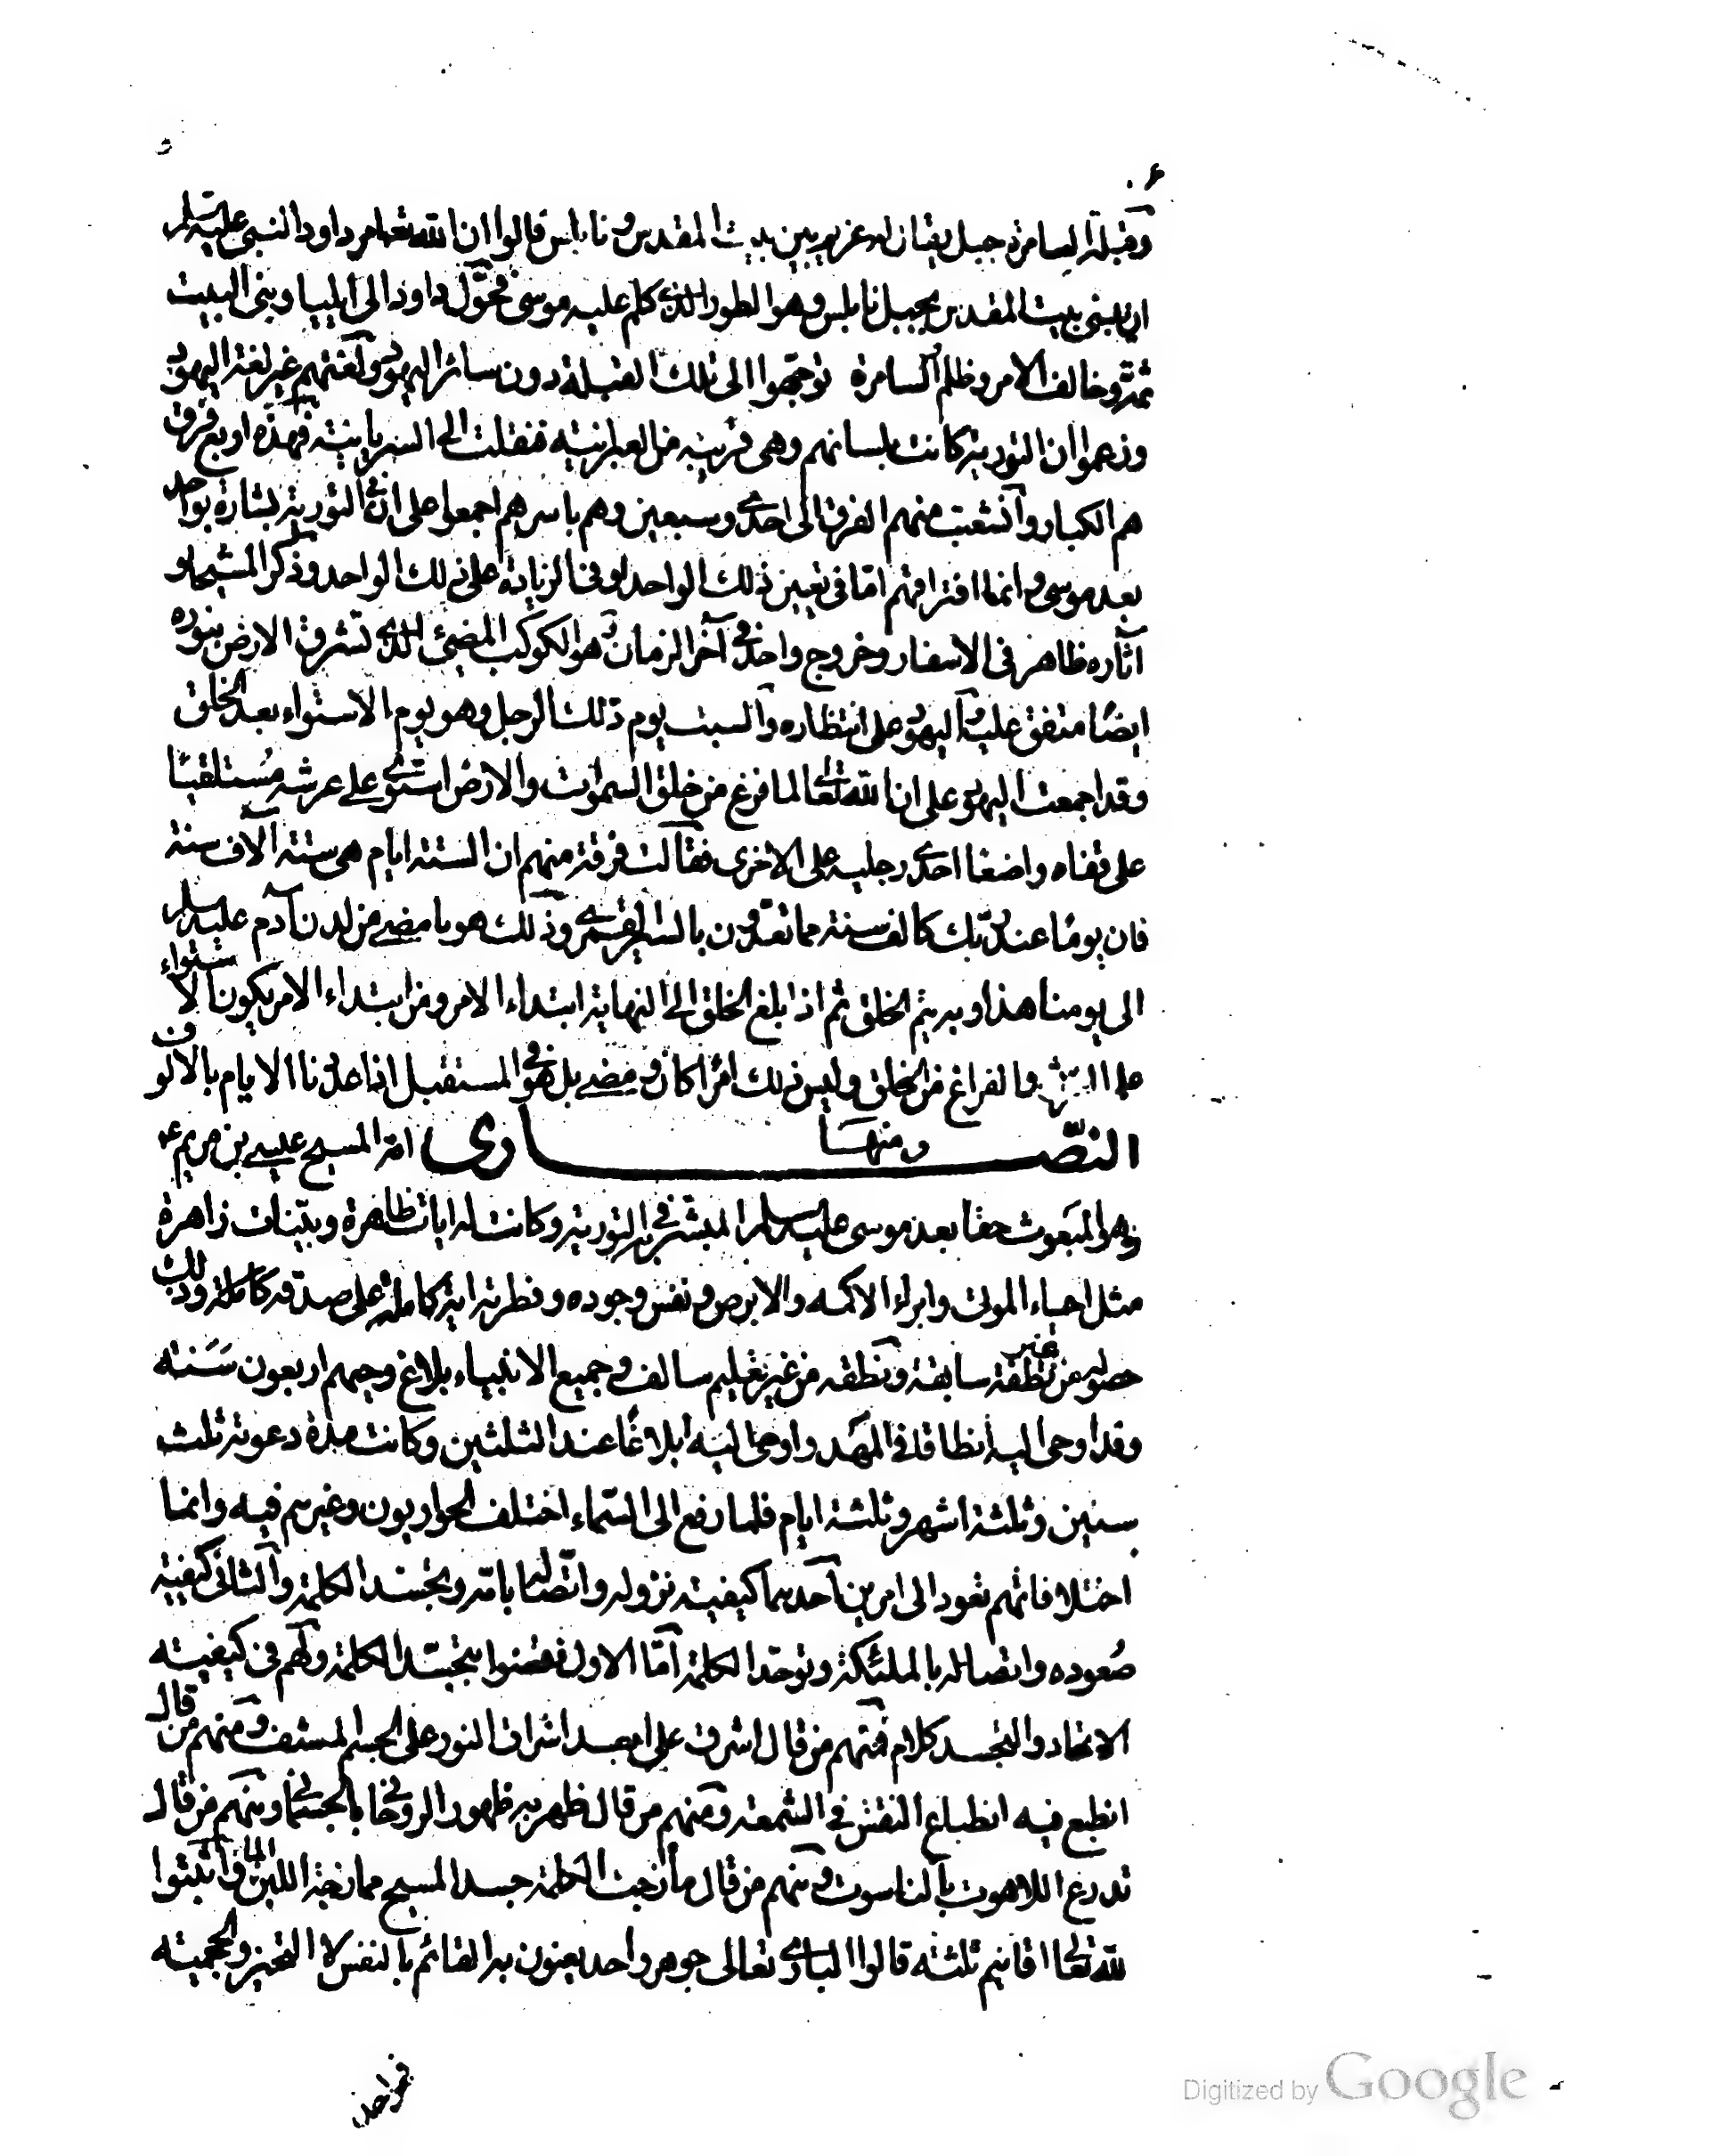 وقبلة السامرة جبل يقال له غزيم بين بيت المقدس ونابلس قالوا ان الله تعالى امر داود النبي عليه السلم
ان يبنى بيت المقدس بجبل نابلس وهو الطور الذى كلم عليه موسى فتحول داود الى ايليا وبنى البيت
ثمة وخالف الامر وظلم والسامرة توجهوا الى تلك القبلة دون سائر اليهود ولغتهم غير لغة اليهود
وزعموا ان التورية كانت بلسانهم وهى قريبة من العبرانية فنقلت الى السريانية فهذه اربع فرق
هم الكبار وانشعبت منهم الفرق الى احدى وسبعين وهم باسرهم اجمعوا على ان فى التورية بشارة بواحد
بعد موسى وانما افتراقهم اما فى تعيين ذلك الواحد او فى الزيادة على ذلك الواحد وذكر المشيحا و
آثاره ظاهر فى الاسفار وخروج واحد فى آخر الزمان وهو الكوكب المضيئ الذى تشرق الارض بنوره
ايضا متفق عليه واليهود على انتظاره والسبت يوم ذلك الرجل وهو يوم الاستواء بعد الخلق
وقد اجمعت اليهود على ان الله تعالى لما فرغ من خلق السموات والارض استوى على عرشه مستلقيا
على قفاه واضعا احدى رجليه على الاخرى فقالت فرقة منهم ان الستة ايام هى ستة آلاف سنة
فان يوما عند ربك كالف سنة مما تعدون بالسير القمرى وذلك هو ما مضى من لدن آدم عليه السلم
الى يومنا هذا وبه يتم الخلق ثم اذا بلغ الخلق الى النهاية ابتداء الامر ومن ابتداء الامر يكون الاستواء
على العرش والفراغ من الخلق وليس ذلك امرا كان ومضى بل هو فى المستقبل اذا عددنا الايام بالالوف
ومنها النصارى امة المسيح عيسى بن مريم ع
وهو المبعوث حقا بعد موسى عليه السلم المبشر به فى التورية وكانت له ايات ظاهرة وبينات زاهرة
مثل احياء الموتى وابراء الاكمه والابرص ونفس وجوده وفطرته اية كاملة على صدقه كاملة وذلك
حصوله من غير نطفة سابقة ونطقه من غير تعليم سالف وجميع الانبياء بلاغ وحيهم اربعون سنة
وقد اوحى اليه انطاقا فى المهد واوحى اليه ابلاغا عند الثلثين وكانت مدة دعوته ثلث
سنين وثلثة اشهر وثلثة ايام فلما رفع الى السماء اختلف الحواريون وغيرهم فيه وانما
اختلافاتهم تعود الى امرين احدهما كيفية نزوله واتصاله بامه وتجسد الكلمة والثانى كيفية
صعوده واتصاله بالملئكة وتوحد الكلمة اما الاول فقضوا بتجسد الكلمة ولهم فى كيفية
الاتحاد والتجسد كلام فمنهم من قال اشرق على الجسد اشراق النور على الجسم المشف ومنهم من قال
انطبع فيه انطباع النقش فى الشمعة ومنهم من قال ظهر به ظهور الروحانى بالجسمانى ومنهم من قال
تدرع اللاهوت بالناسوت ومنهم من قال مازجت الكلمة جسد المسيح ممازجة اللبن الماء واثبتوا
لله تعالى اقانيم ثلثة قالوا البارى تعالى جوهر واحد يعنون به القائم بالنفس لا التحيز والحجمية
فهو احد
Digitized by Google